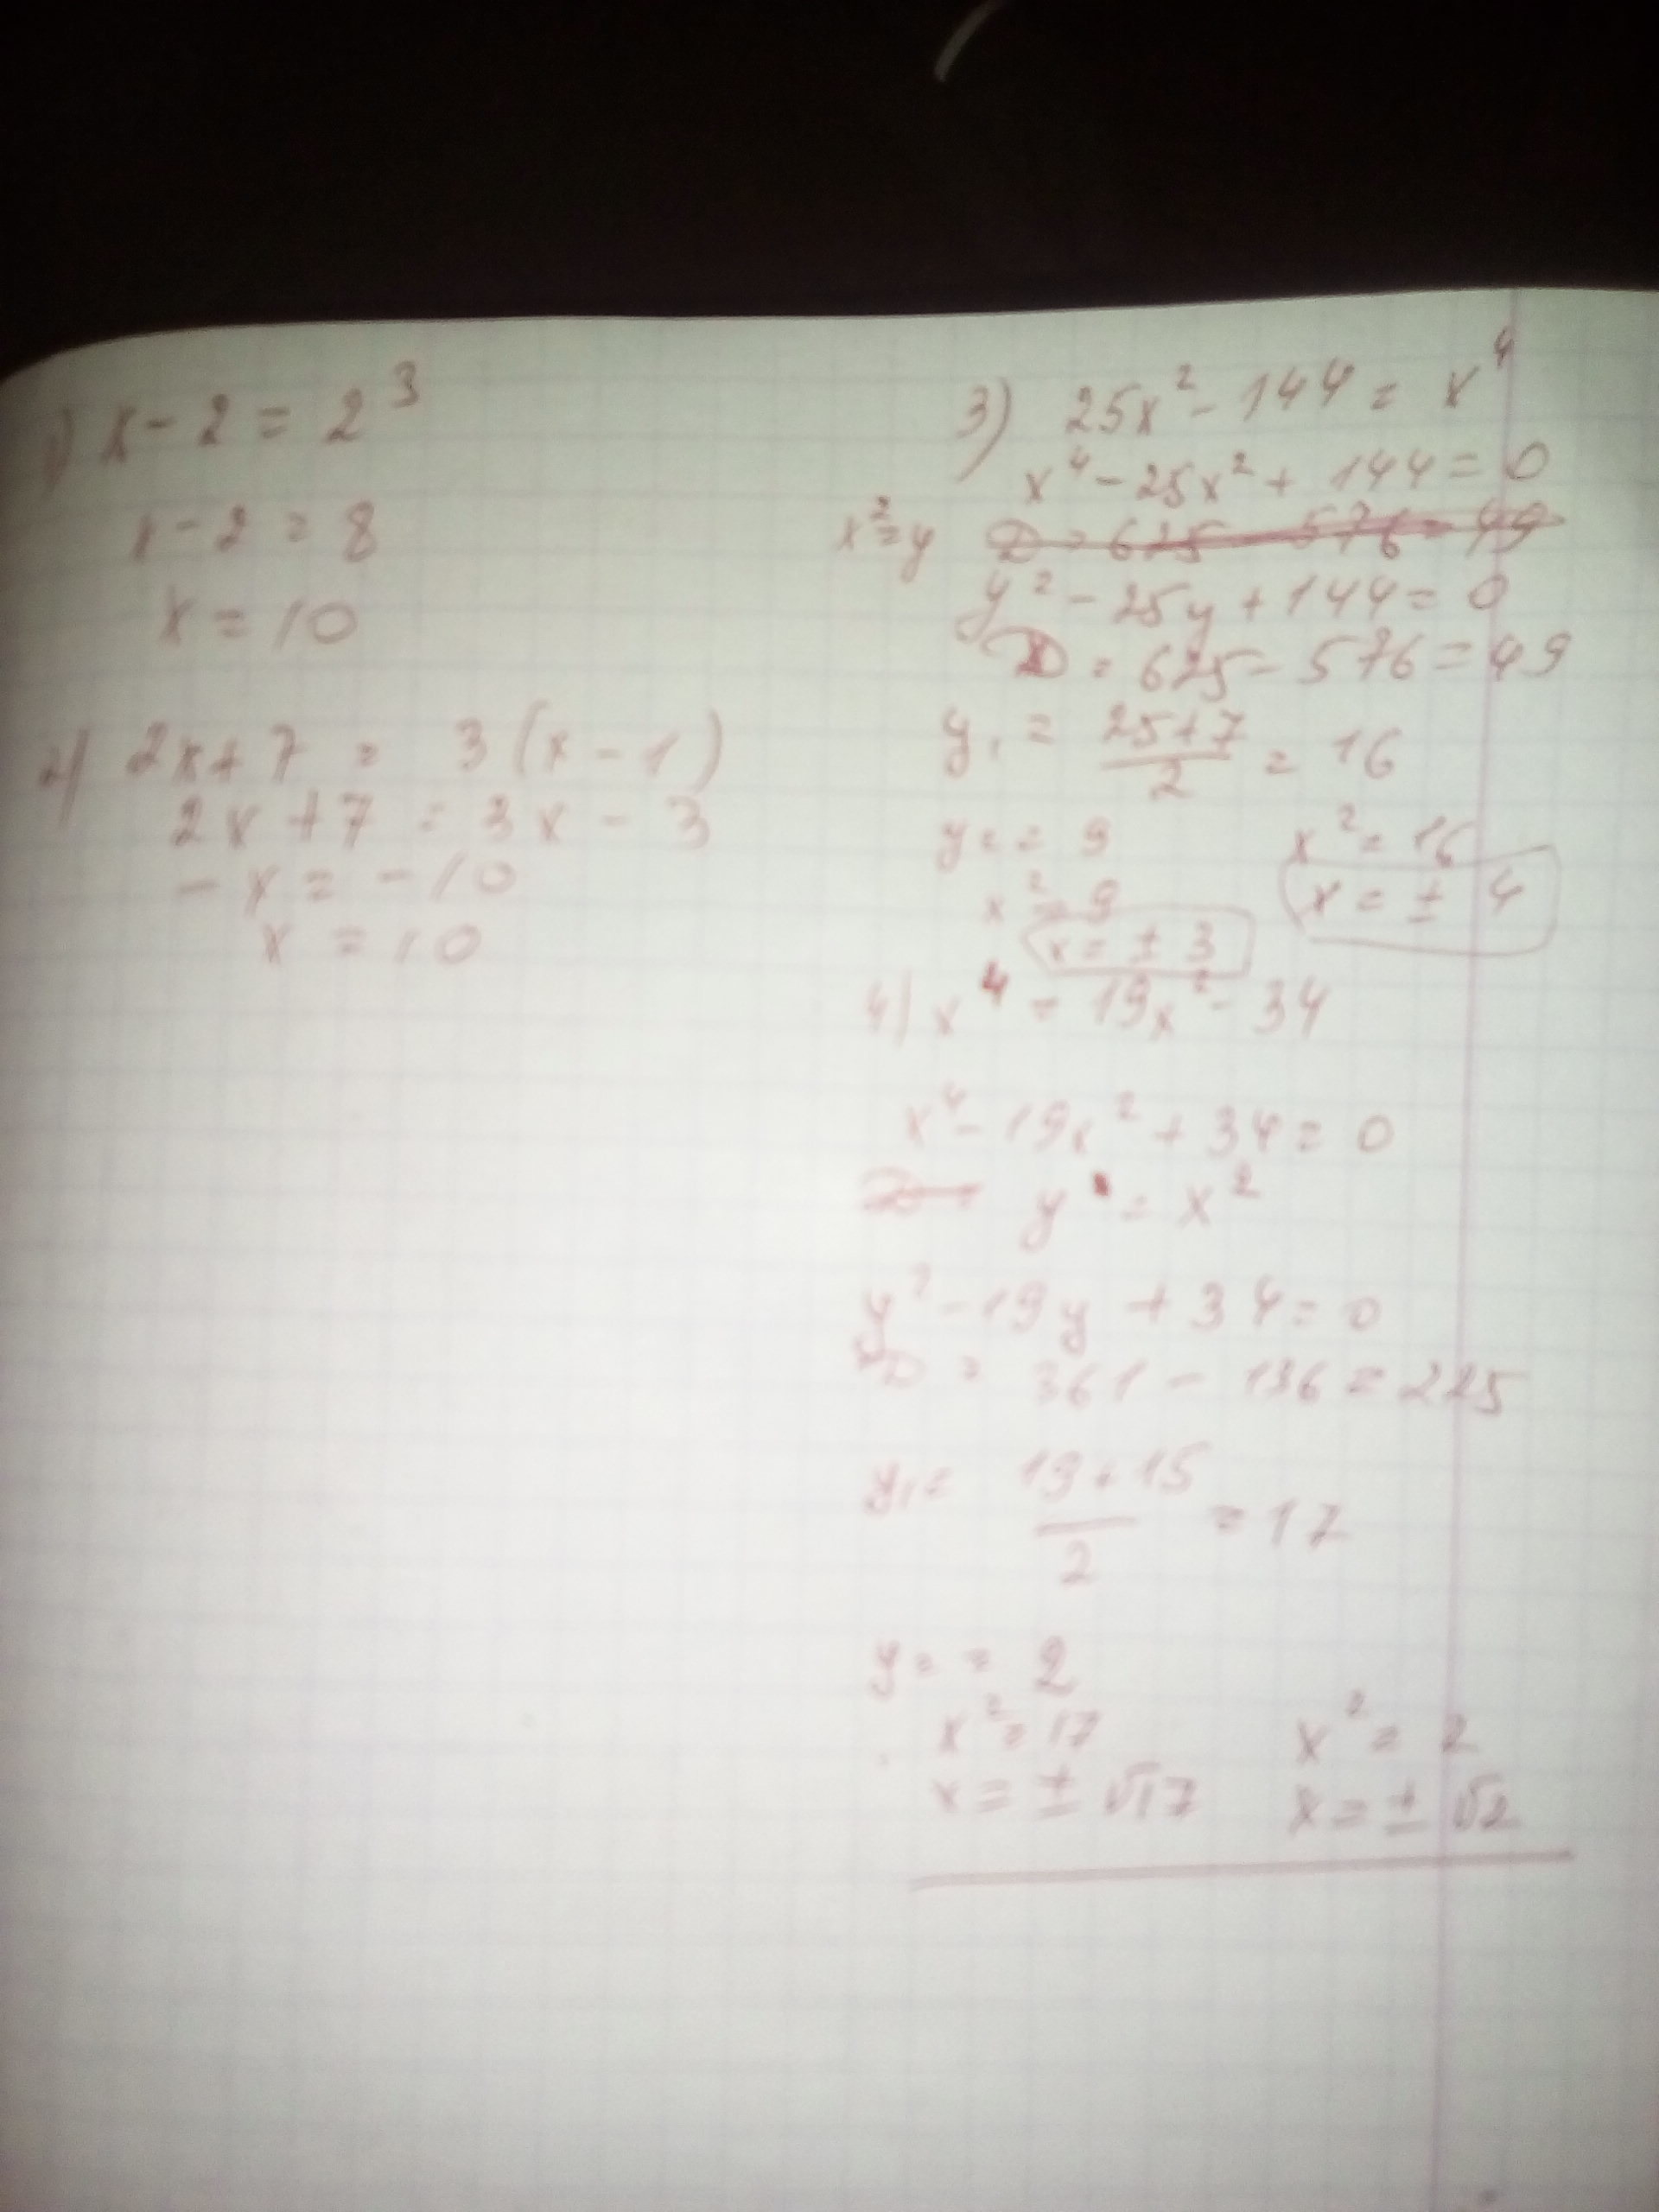 1) x - 2 = 2³
x - 2 = 8
x = 10
2) 2x + 7 = 3(x - 1)
2x + 7 = 3x - 3
- x = - 10
x = 10
3) 25x² - 144 = x⁴
x⁴ - 25x² + 144 = 0
x² = y D = 625 - 576 = 49
y² - 25y + 144 = 0
D = 625 - 576 = 49
y₁ = (25 + 7)/2 = 16
y = = 9 x² = 16
x² = 9 x = ± 4
x = ± 3
4) x⁴ = 19x² - 34
x⁴ - 19x² + 34 = 0
D = y = x²
y² - 19y + 34 = 0
D = 361 - 136 = 225
y₁ = (19 + 15)/2 = 17
y = = 2
x² = 17 x² = 2
x = ± √17 x = ± √2